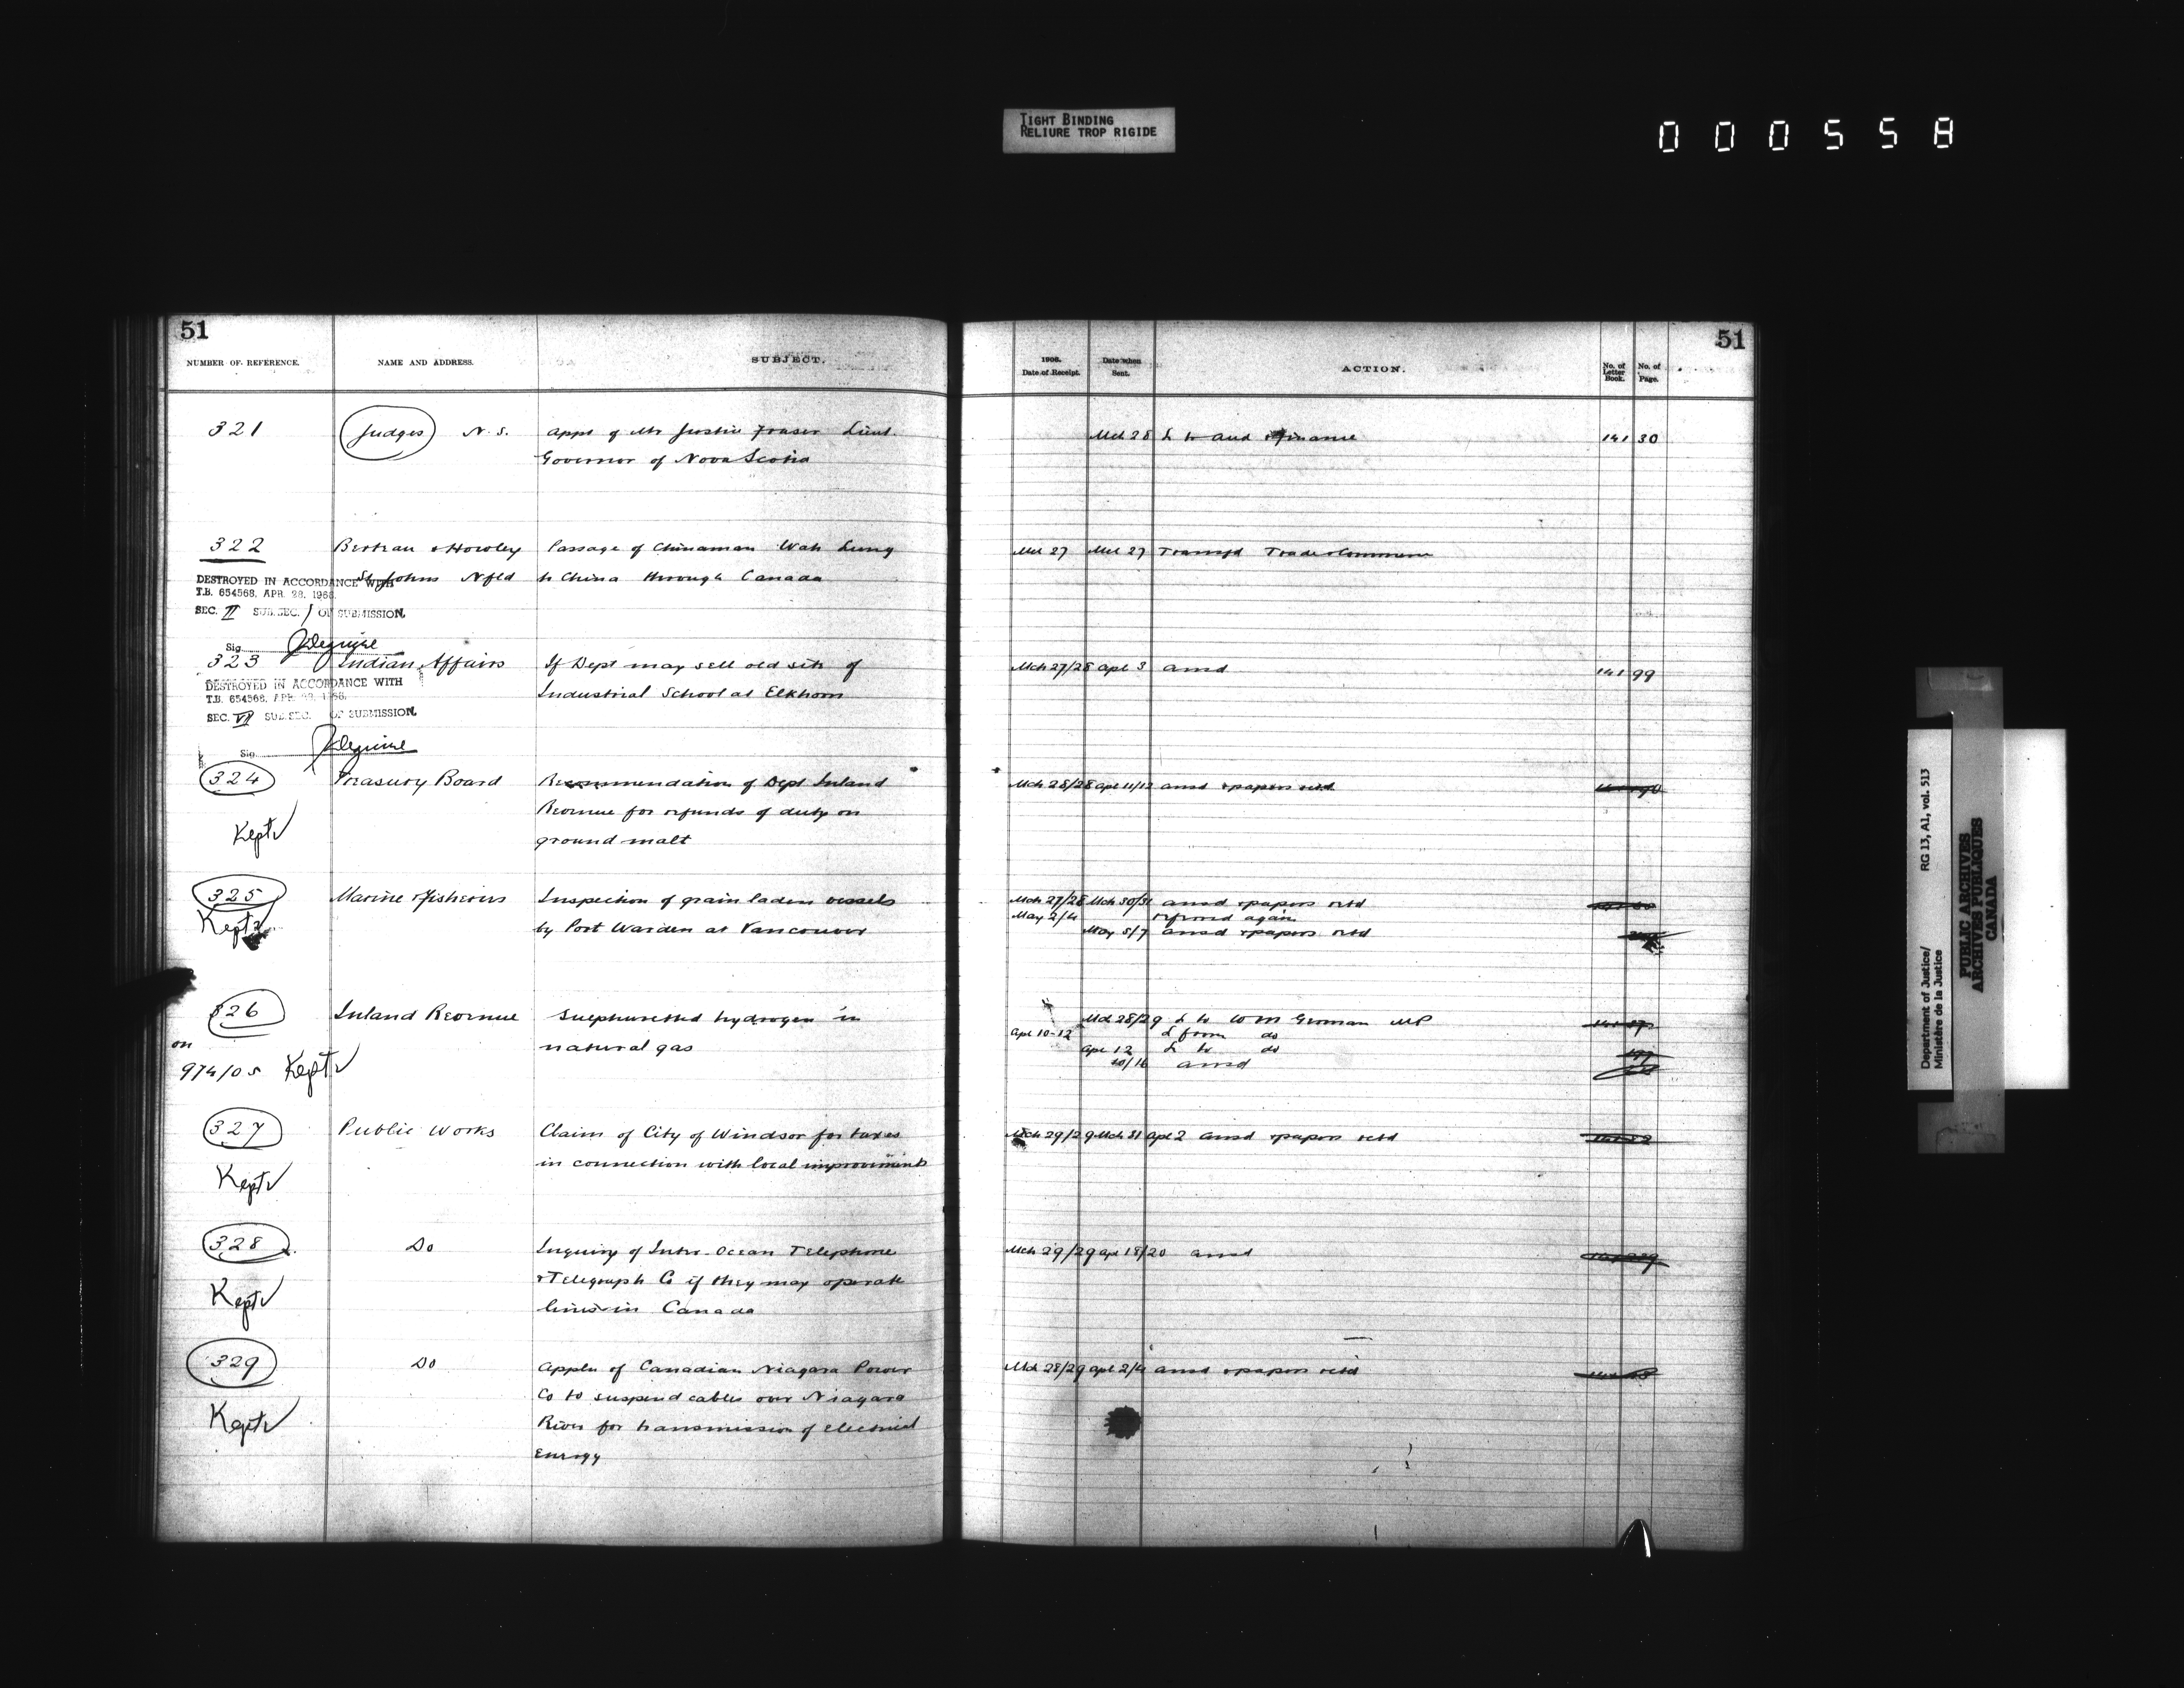 TIGHT BINDING
RELIURE TROP RIGIDE
000558
51
NUMBER OF REFERENCE. NAME AND ADDRESS. SUBJECT.
321 Judges N.S. Appt of Mr Justice Fraser Lieut.
Governor of Nova Scotia
322 & Howley Passage of Chinaman Wah Lung
St Johns Nfld to China through Canada
DESTROYED IN ACCORDANCE WITH
T.B. 654568, APR. 28, 1966.
SEC. II SUB.SEC. 1 OF SUBMISSION.
Sig.
323 Indian Affairs If Dept may sell old site of
Industrial School at Elkhorn
DESTROYED IN ACCORDANCE WITH
T.B. 654568, APR. 28, 1966.
SEC. VII SUB.SEC. OF SUBMISSION.
Sig.
324 Treasury Board Recommendation of Dept Inland
Revenue for refunds of duty on
Kept
ground malt
325 Marine & Fisheries Inspection of grain laden vessels
Kept
by Port Warden at Vancouver
326 Inland Revenue Sulphuretted hydrogen in
natural gas
on
974/05 Kept
327 Public Works Claim of City of Windsor for taxes
in connection with local improvements
Kept
328 Do Inquiry of Inter-Ocean Telephone
& Telegraph Co if they may operate
Kept
lines in Canada
329 Do Appln of Canadian Niagara Power
Co to suspend cables over Niagara
Kept
River for transmission of electrical
energy
51
1906.
Date of Receipt. Date when Sent. ACTION. No. of Letter Book. No. of Page.
Mch 28 L to Aud & Finance 141 30
Mch 27 Mch 27 Transfd Trade & Commerce
Mch 27/28 Apl 3 ansd 141 99
Mch 28/28 Apl 11/12 ansd & papers retd
Mch 27/28 Mch 30/31 ansd & papers retd
May 2/4 referred again
May 5/7 ansd & papers retd
Mch 28/29 L to W M German MP
Apl 10-12 L from do
Apl 12 L to do
10/16 ansd
Mch 29/29 Mch 31 Apl 2 ansd & papers retd
Mch 29/29 Apl 18/20 ansd
Mch 28/29 Apl 2/4 ansd & papers retd
Department of Justice/ RG 13, A1, vol. 513
Ministère de la Justice
PUBLIC ARCHIVES
ARCHIVES PUBLIQUES
CANADA